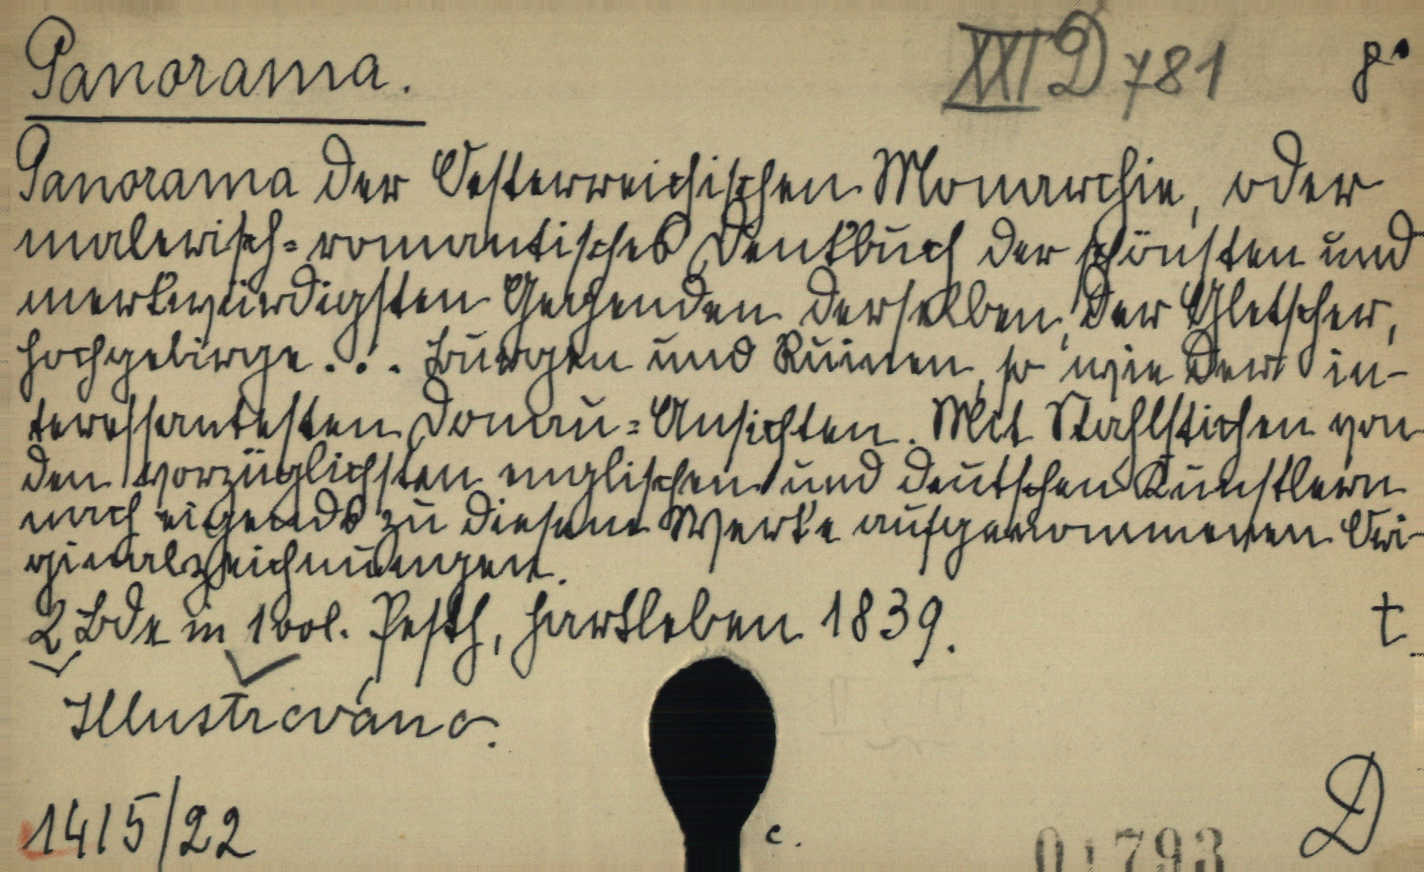 Panorama.
XXI D 781
8°
Panorama der Oesterreichischen Monarchie, oder
malerisch-romantisches Denkbuch der schönsten und
merkwürdigsten Gegenden derselben, der Gletscher,
Hochgebirge... Burgen und Ruinen, so wie der in-
teressantesten Donau-Ansichten. Mit Stahlstichen von
den vorzüglichsten englischen und deutschen Künstlern
nach eigends zu diesem Werke aufgenommenen Ori-
ginalzeichnungen.
2 Bde in 1 vol. Pesth, Hartleben 1839.
t
Illustrováno.
1415/22
c.
01793
D